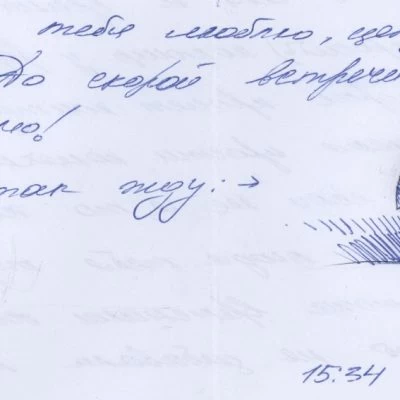 тебя люблю, це
До скорой встречи
мо!
так жду: →
15:34